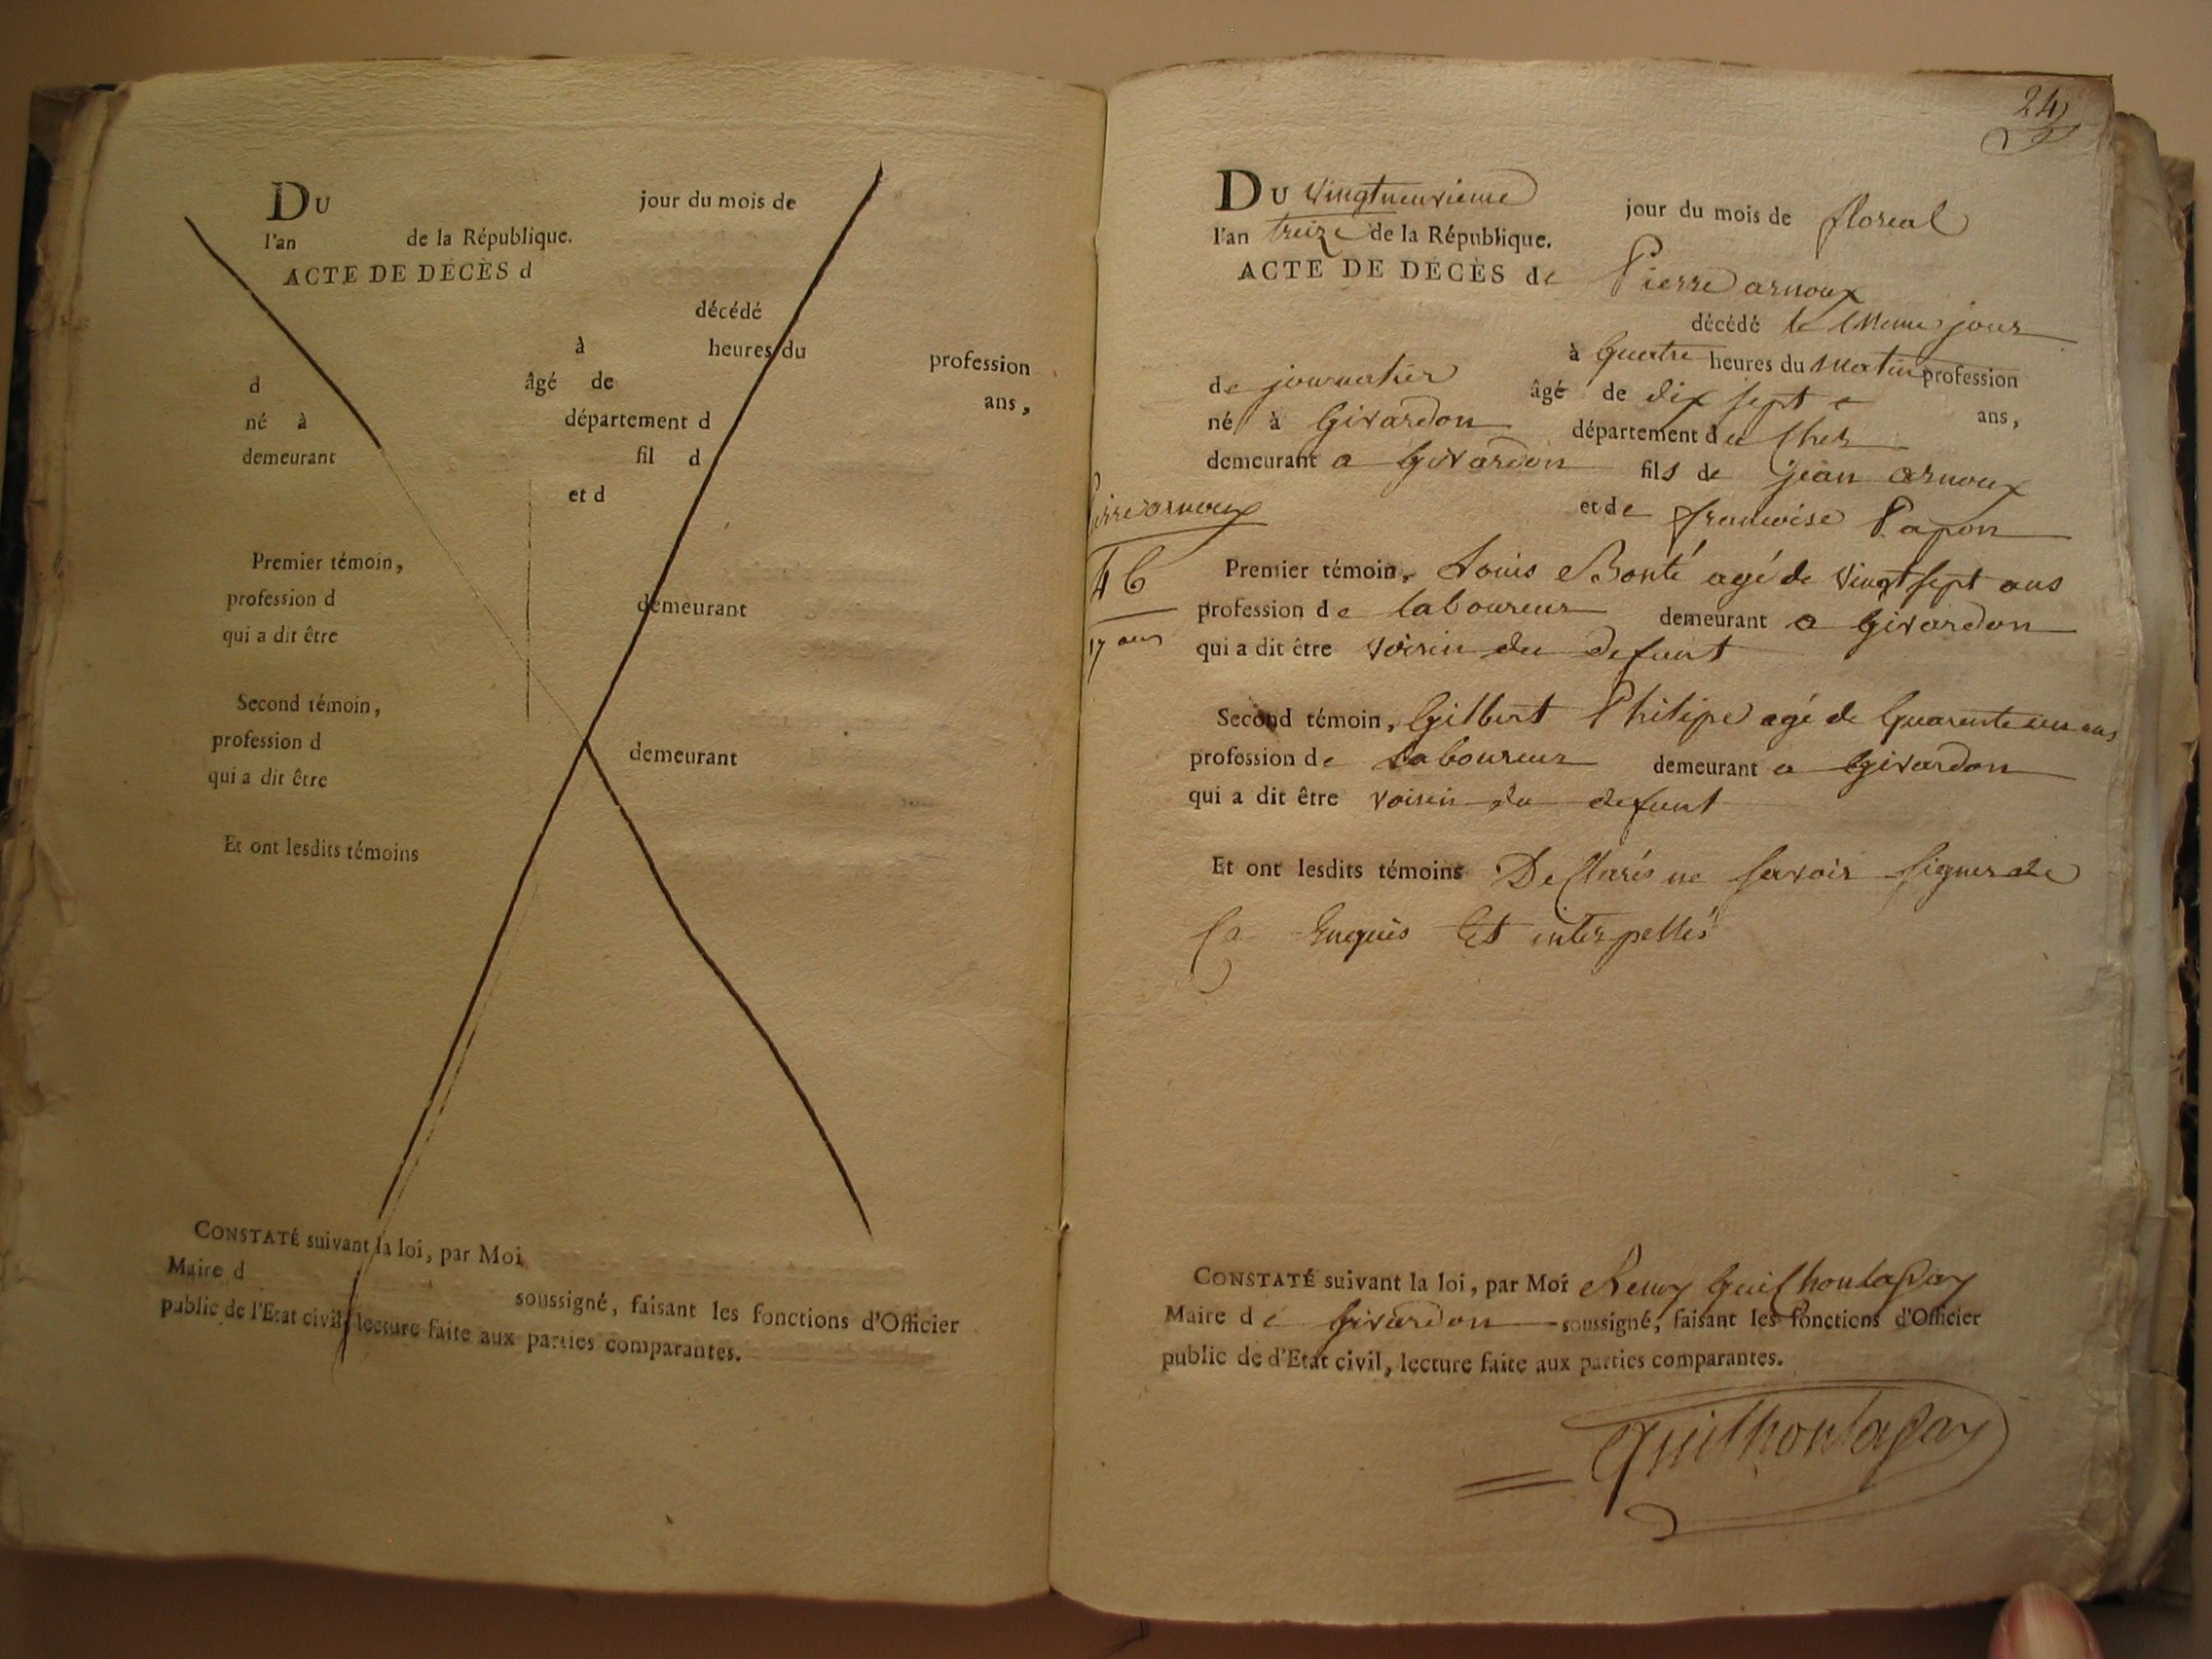 Du jour du mois de
l'an de la République.
ACTE DE DÉCÈS d
décédé
à heures du profession
d âgé de ans,
né à département d
demeurant fil d
et d
Premier témoin,
profession d demeurant
qui a dit être
Second témoin,
profession d demeurant
qui a dit être
Et ont lesdits témoins
CONSTATÉ suivant la loi, par Moi
Maire d soussigné, faisant les fonctions d'Officier
public de l'Etat civil, lecture faite aux parties comparantes.
24
Du vingtneuvieme jour du mois de floreal
l'an treize de la République.
ACTE DE DÉCÈS de Pierre arnoux
décédé le meme jour
à quatre heures du matin profession
de journalier âgé de dix sept ans,
né à Givardon département du Cher
demeurant a Givardon fils de jean arnoux
et de francoise Papon
Pierre arnoux
17 ans
Premier témoin, Louis Bonté agé de vingt sept ans
profession de laboureur demeurant a Givardon
qui a dit être voisin du defunt
Second témoin, Gilbert Philipe agé de quarente un ans
profession de laboureur demeurant a Givardon
qui a dit être voisin du defunt
Et ont lesdits témoins Declarés ne savoir signer de
Ce Enquis Et interpellés
CONSTATÉ suivant la loi, par Moi Remy Guilhoulapay
Maire de Givardon soussigné, faisant les fonctions d'Officier
public de d'Etat civil, lecture faite aux parties comparantes.
Guilhoulapay